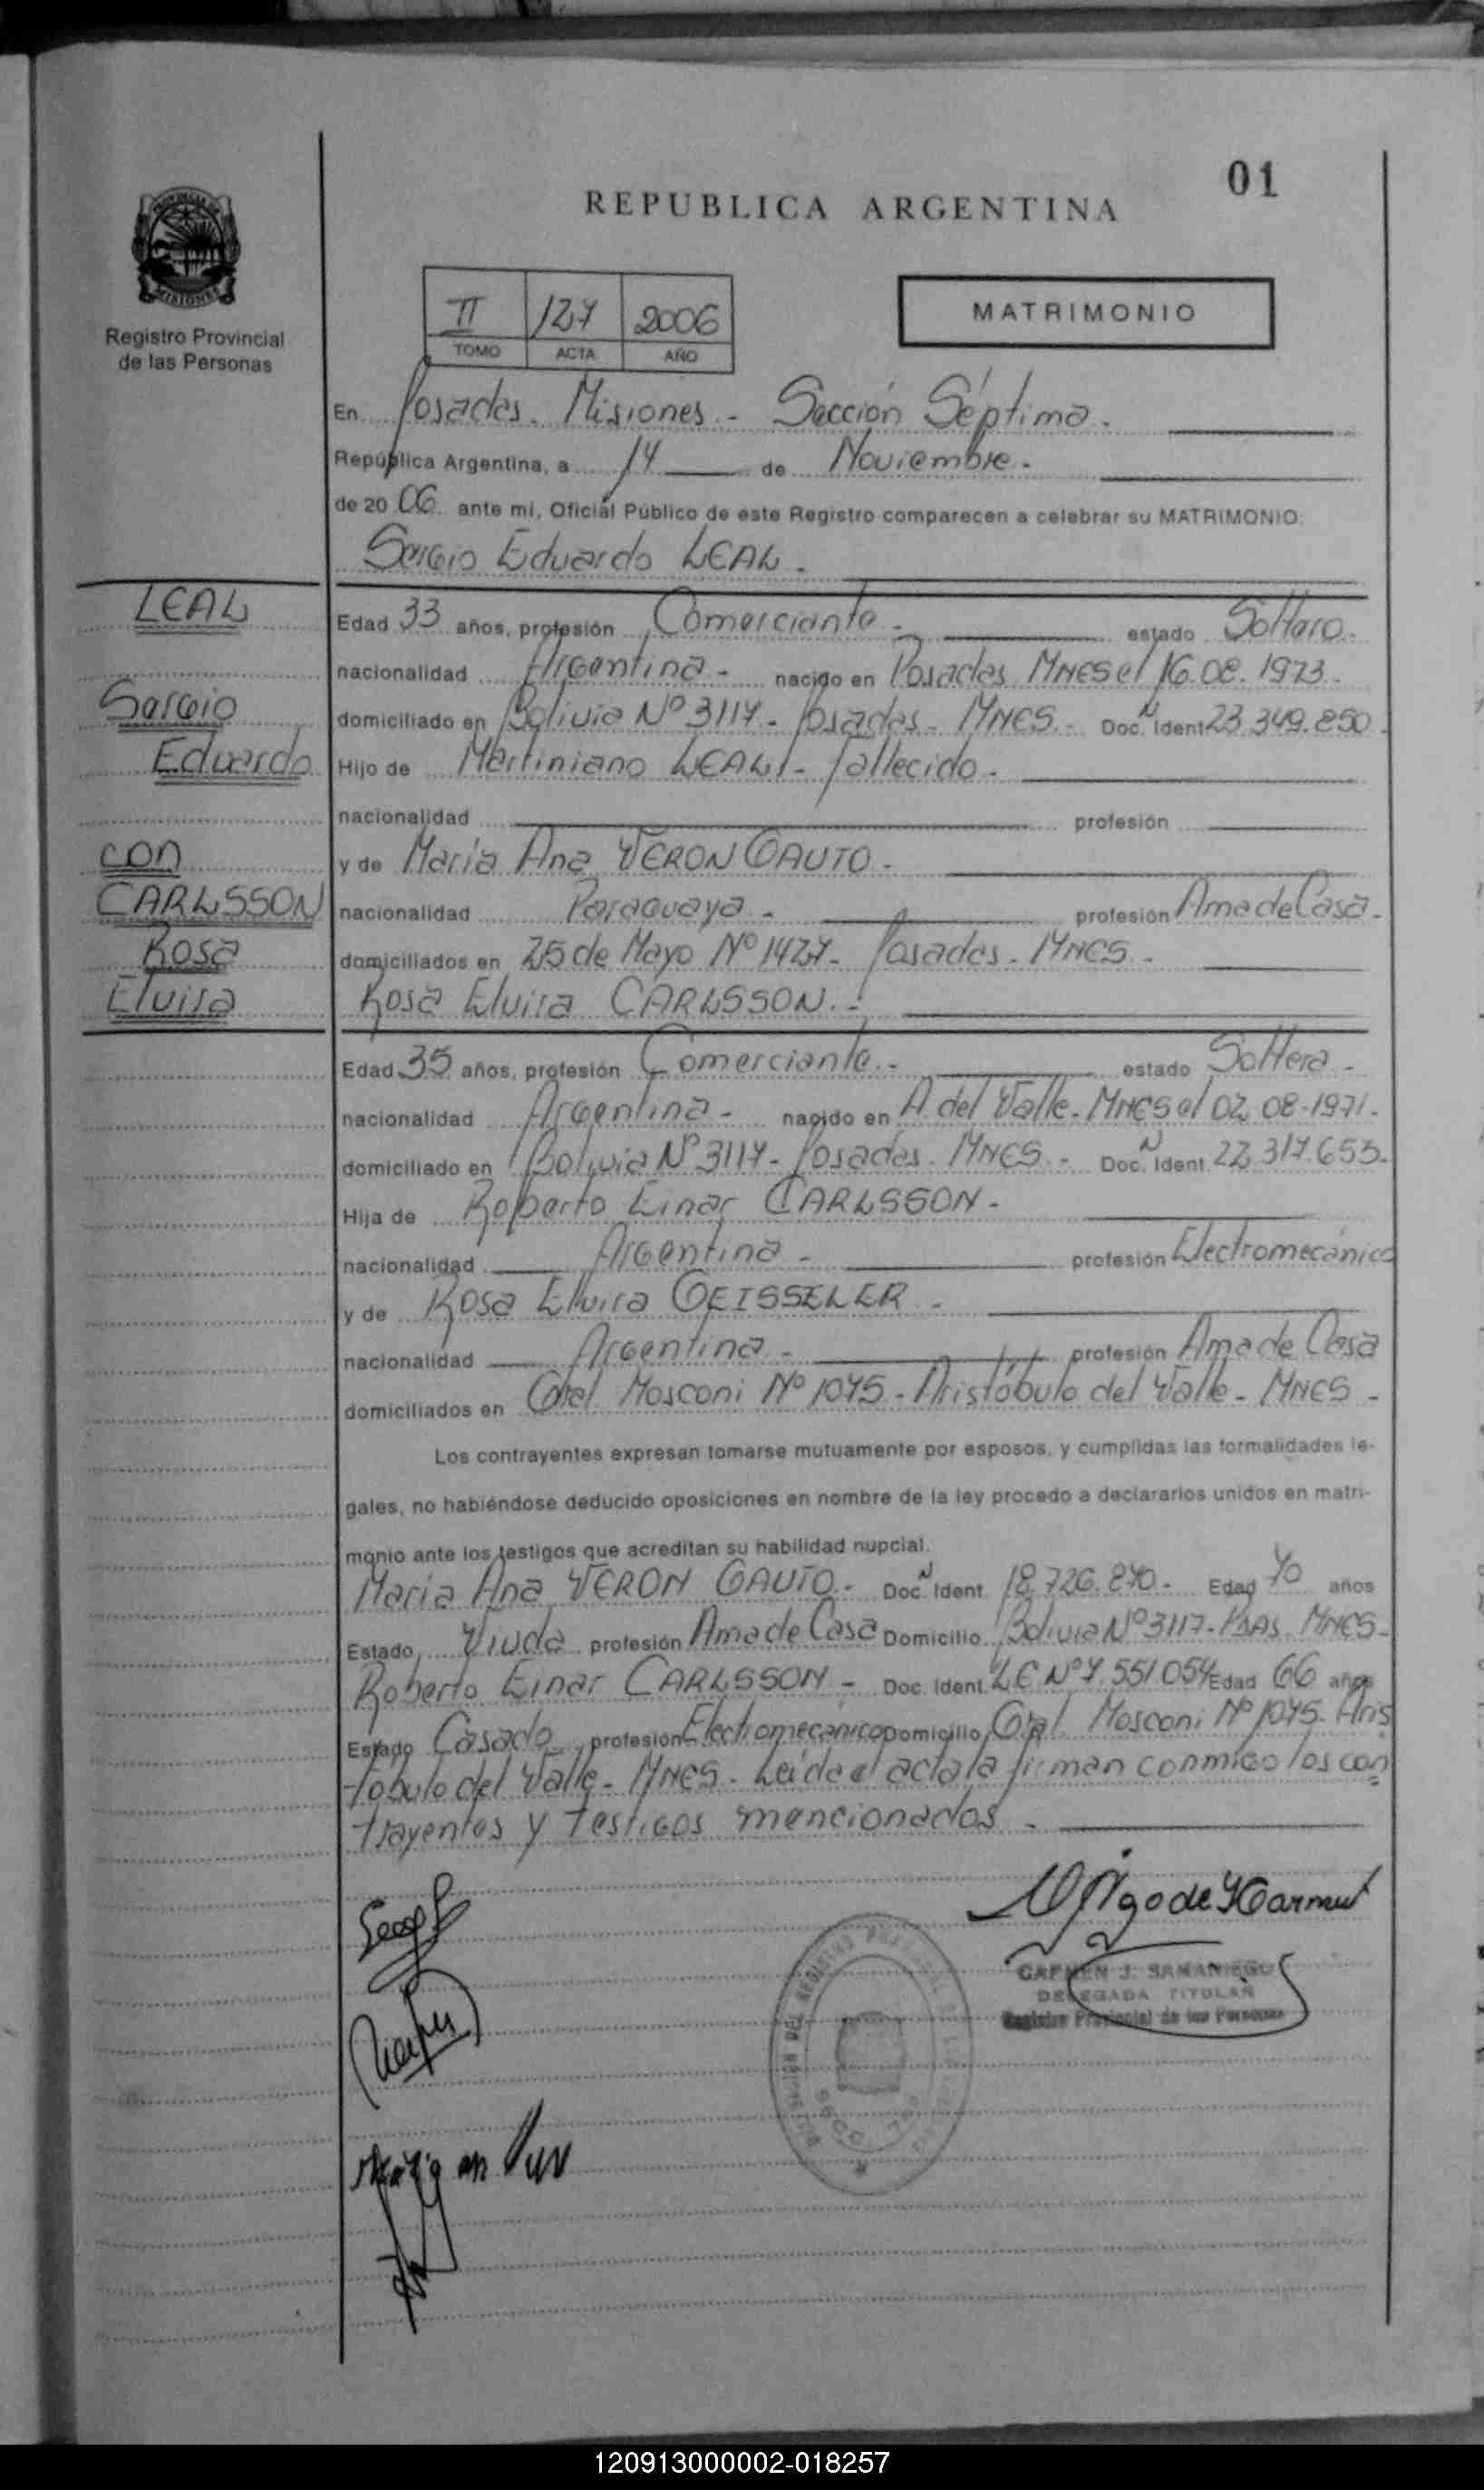 01
REPUBLICA ARGENTINA
PROVINCIA DE
MISIONES
Registro Provincial
de las Personas
II 127 2006
TOMO ACTA AÑO
MATRIMONIO
En Posadas. Misiones - Sección Séptima.
República Argentina, a 14 de Noviembre.
de 20 06. ante mi, Oficial Público de este Registro comparecen a celebrar su MATRIMONIO:
Sergio Eduardo LEAL.
LEAL
Sergio
Eduardo
con
CARLSSON
Rosa
Elvira
Edad 33 años, profesión Comerciante. estado Soltero.
nacionalidad Argentina - nacido en Posadas MNES el 16.08.1973.
domiciliado en Bolivia Nº 3117 - Posadas - MNES. Doc. N Ident 23.349.850.
Hijo de Martiniano LEAL - fallecido.
nacionalidad profesión
y de Maria Ana VERON GAUTO.
nacionalidad Paraguaya - profesión Ama de Casa.
domiciliados en 25 de Mayo Nº 1427 - Posadas - MNES.
Rosa Elvira CARLSSON. -
Edad 35 años, profesión Comerciante. estado Soltera -
nacionalidad Argentina - nacido en A. del Valle - MNES el 02.08-1971.
domiciliado en Bolivia Nº 3117 - Posadas. MNES. - Doc. N Ident. 22.317.653.
Hija de Roberto Einar CARLSSON -
nacionalidad Argentina - profesión Electromecánico
y de Rosa Elvira GEISSELER -
nacionalidad Argentina - profesión Ama de Casa
domiciliados en Gral. Mosconi Nº 1045 - Aristóbulo del Valle - MNES -
Los contrayentes expresan tomarse mutuamente por esposos, y cumplidas las formalidades le-
gales, no habiéndose deducido oposiciones en nombre de la ley procedo a declararlos unidos en matri-
monio ante los testigos que acreditan su habilidad nupcial.
Maria Ana VERON GAUTO. Doc. N Ident. 18.726.870. Edad 70 años
Estado Viuda profesión Ama de Casa Domicilio Bolivia Nº 3117 - PSAS. MNES -
Roberto Einar CARLSSON - Doc. Ident. L.E Nº 7.551.054 Edad 66 años
Estado Casado profesión Electromecánico Domicilio Gral. Mosconi Nº 1045 - Aris
tobulo del Valle - MNES - Leída el acta la firman conmigo los con
trayentes y testigos mencionados.
CARMEN J. SAMANIEGO
DELEGADA TITULAR
Registro Provincial de las Personas
120913000002-018257